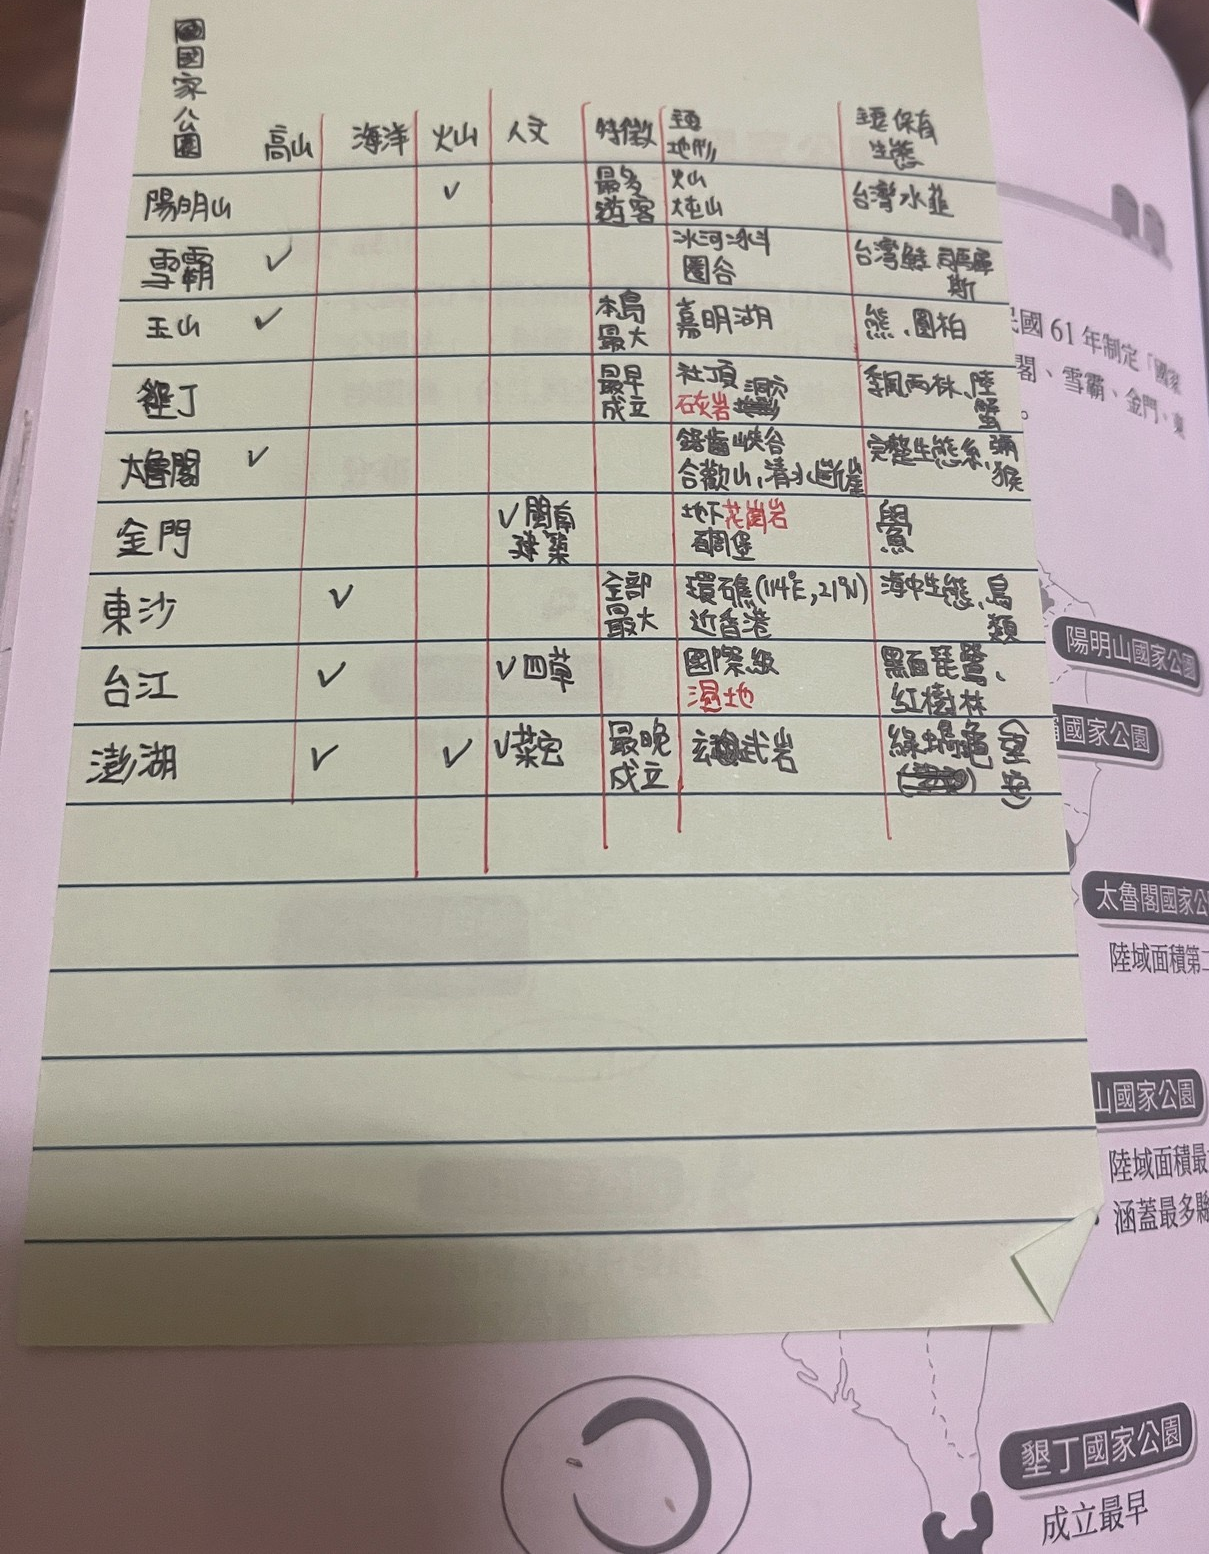 國家公園
高山 海洋 火山 人文 特徵 主要地形 主要保育生態
陽明山 ✓ 最多遊客 火山 大屯山 台灣水韮
雪霸 ✓ 冰河冰斗 圈谷 台灣鮭 司馬庫斯
玉山 ✓ 本島最大 嘉明湖 熊、圓柏
墾丁 最早成立 社頂 石灰岩洞穴 季風雨林、陸蟹
太魯閣 ✓ 鋸齒峽谷 合歡山,清水斷崖 完整生態系,獼猴
金門 ✓閩南建築 地下花崗岩碉堡 鱟
東沙 ✓ 全部最大 環礁(114°E,21°N) 近香港 海中生態、鳥類
台江 ✓ ✓四草 國際級濕地 黑面琵鷺、紅樹林
澎湖 ✓ ✓ ✓菜宅 最晚成立 玄武岩 綠蠵龜(望安)
民國61年制定「國家
閣、雪霸、金門、東
。
陽明山國家公園
霸國家公園
太魯閣國家公
陸域面積第二
山國家公園
陸域面積最
涵蓋最多縣
墾丁國家公園
成立最早